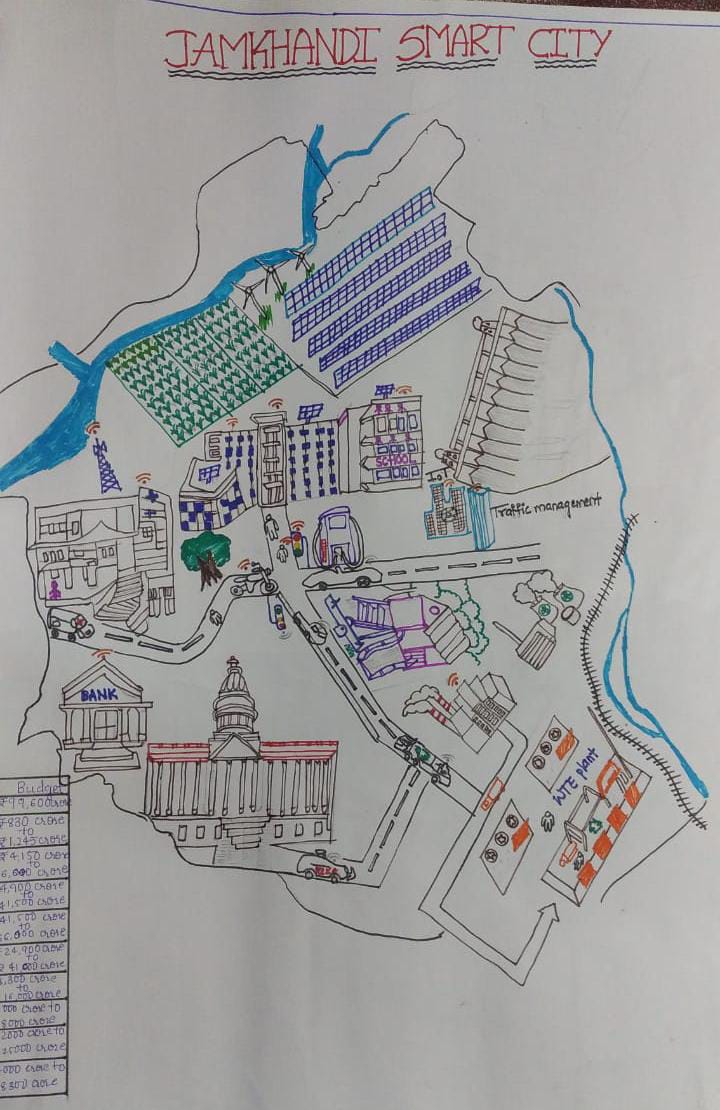 JAMKHANDI SMART CITY
SCHOOL
IoT
Traffic management
BANK
WTE plant
Budget
₹99,600 crore
₹830 crore
to
₹1,245 crore
₹4,150 crore
to
crore
4,900 crore
to
41,500 crore
41,500 crore
to
crore
24,900 crore
to
crore
crore
to
16,000 crore
000 crore to
8000 crore
2000 crore to
25000 crore
000 crore to
8300 crore